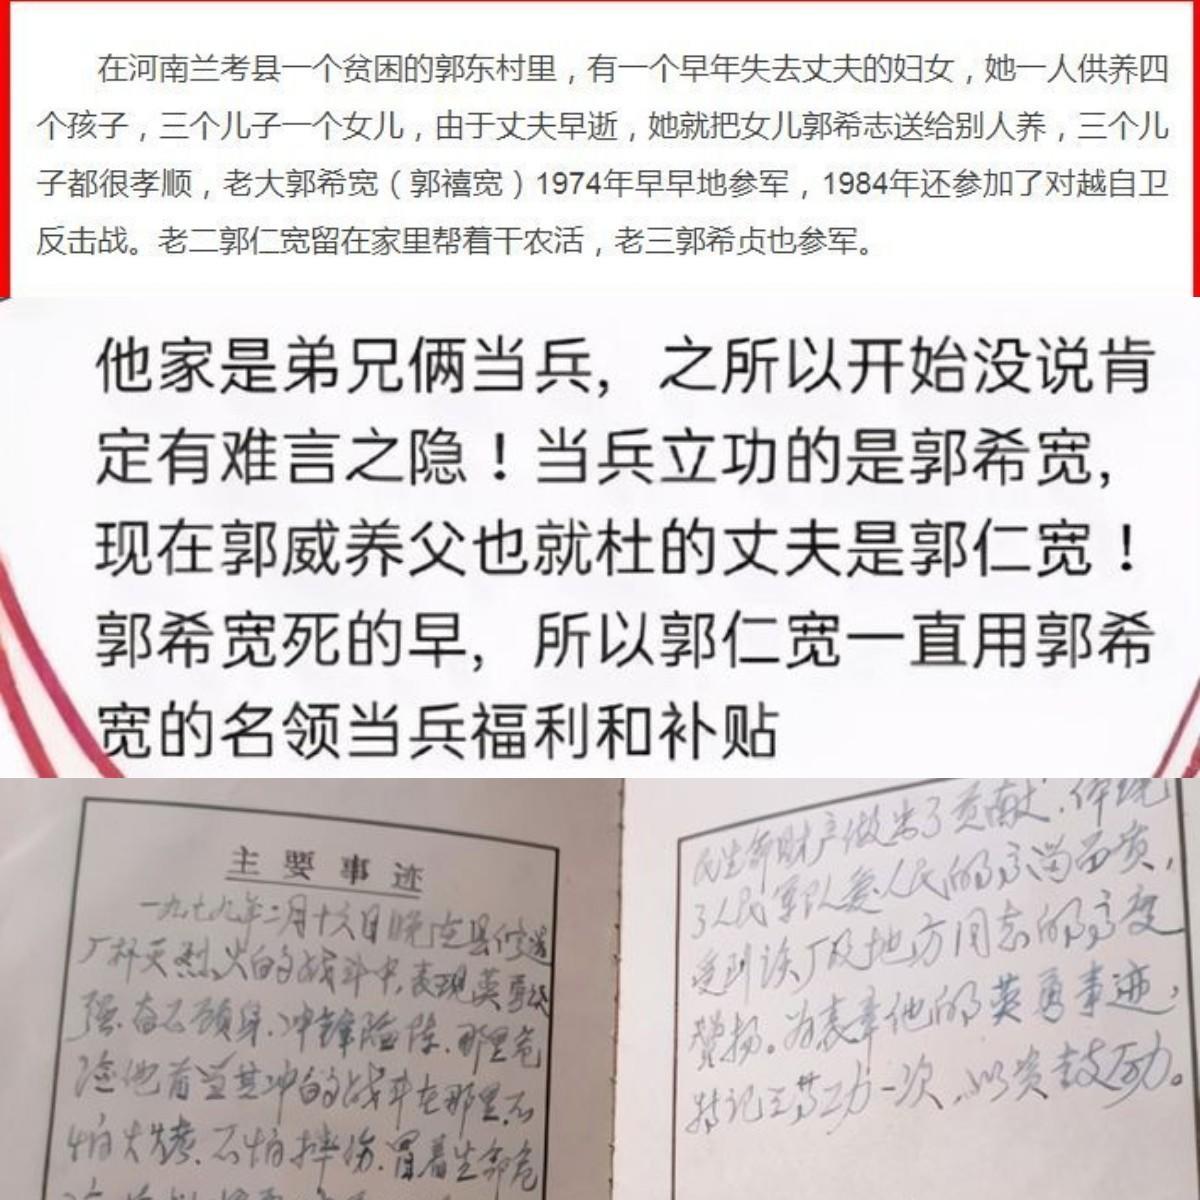 在河南兰考县一个贫困的郭东村里，有一个早年失去丈夫的妇女，她一人供养四
个孩子，三个儿子一个女儿，由于丈夫早逝，她就把女儿郭希志送给别人养，三个儿
子都很孝顺，老大郭希宽（郭禧宽）1974年早早地参军，1984年还参加了对越自卫
反击战。老二郭仁宽留在家里帮着干农活，老三郭希贞也参军。
他家是弟兄俩当兵，之所以开始没说肯
定有难言之隐！当兵立功的是郭希宽，
现在郭威养父也就杜的丈夫是郭仁宽！
郭希宽死的早，所以郭仁宽一直用郭希
宽的名领当兵福利和补贴
主要事迹
一九七九年二月十六日晚在县
厂抔灭烈火的战斗中，表现英勇顽
强，奋不顾身，冲锋险阵，那里危
险他首当其冲的战斗在那里，不
怕火烤，不怕摔伤，冒着生命危
民生命财产做出了贡献，体现
了人民军队爱人民的高尚品质，
受到该厂及地方同志的高度
赞扬。为表彰他的英勇事迹，
特记三等功一次，以资鼓励。